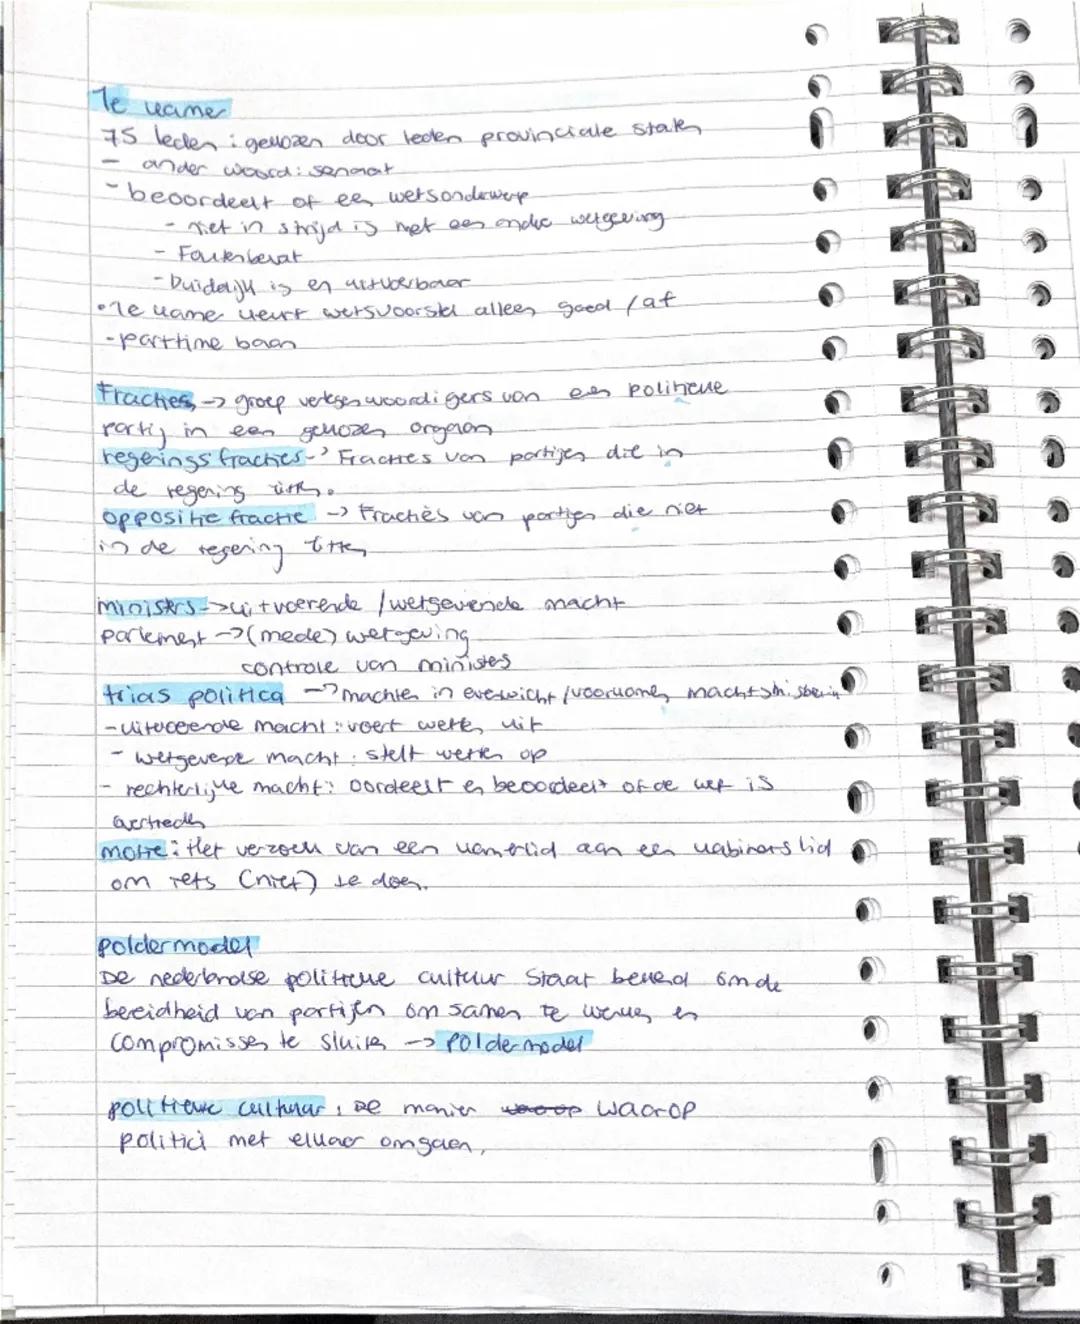 1e kamer
75 leden : gekozen door leden provinciale staten
- ander woord: senaat
- beoordeelt of een wetsonderwerp
- niet in strijd is met een andre wetgeving
- Fouten bevat
- Duidelijk is en uitvoerbaar
• 1e kamer keurt wetsvoorstel alleen goed / af
- parttime baan
Fracties -> groep vertegenwoordigers van een politieke
partij in een gekozen orgaan
regerings fracties -> Fracties van partijen die in
de regering zitten.
oppositie fractie -> Fracties van partijen die niet
in de regering zitten
ministers -> uitvoerende / wetgevende macht
parlement -> (mede) wetgeving
controle van ministers
trias politica -> machten in evenwicht / voorkomen machtsmisbruik
- uitvoerende macht : voert wetten uit
- wetgevende macht : stelt wetten op
- rechterlijke macht : oordeelt en beoordeelt of de wet is
overtreden
motie : Het verzoek van een kamerlid aan een kabinetslid
om iets (niet) te doen.
poldermodel
De nederlandse politieke cultuur staat bekend om de
bereidheid van partijen om samen te werken en
compromissen te sluiten -> poldermodel
politieke cultuur : De manier waarop waarop
politici met elkaar omgaan.